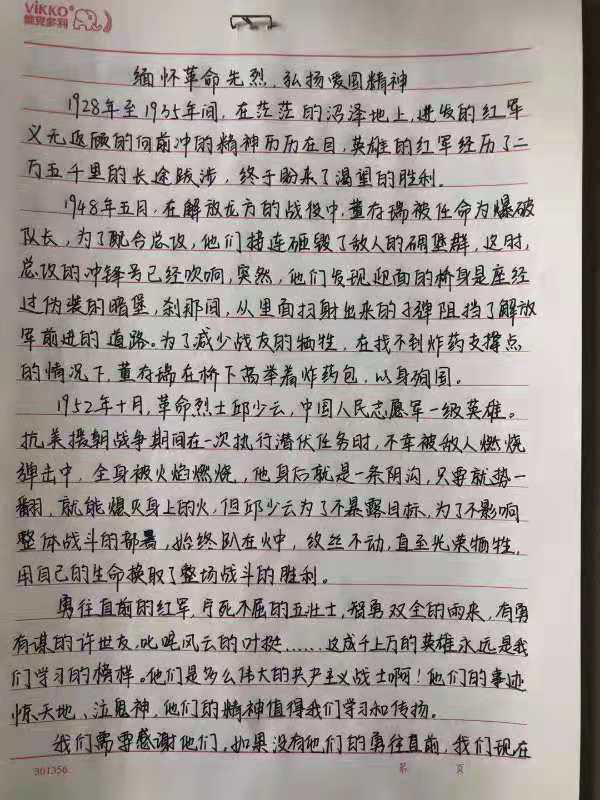 VIKKO®
维克多利
缅怀革命先烈,弘扬爱国精神
1928年至1935年间,在茫茫的沼泽地上,进发的红军
义无返顾的向前冲的精神历历在目,英雄的红军经历了二
万五千里的长途跋涉,终于盼来了渴望的胜利。
1948年五月,在解放龙方的战役中,董存瑞被任命为爆破
队长,为了配合总攻,他们接连砸毁了敌人的碉堡群,这时,
总攻的冲锋号已经吹响,突然,他们发现迎面的桥身是座经
过伪装的暗堡,刹那间,从里面扫射出来的子弹阻挡了解放
军前进的道路。为了减少战友的牺牲,在找不到炸药支撑点
的情况下,董存瑞在桥下高举着炸药包,以身殉国。
1952年十月,革命烈士邱少云,中国人民志愿军一级英雄。
抗美援朝战争期间在一次执行潜伏任务时,不幸被敌人燃烧
弹击中,全身被火焰燃烧,他身后就是一条阴沟,只要就势一
翻,就能熄灭身上的火,但邱少云为了不暴露目标,为了不影响
整体战斗的部署,始终趴在火中,纹丝不动,直至光荣牺牲,
用自己的生命换取了整场战斗的胜利。
勇往直前的红军,宁死不屈的五壮士,智勇双全的雨来,有勇
有谋的许世友,叱咤风云的叶挺……这成千上万的英雄永远是我
们学习的榜样。他们是多么伟大的共产主义战士啊!他们的事迹
惊天地、泣鬼神,他们的精神值得我们学习和传扬。
我们需要感谢他们。如果没有他们的勇往直前,我们现在
301356 第 页